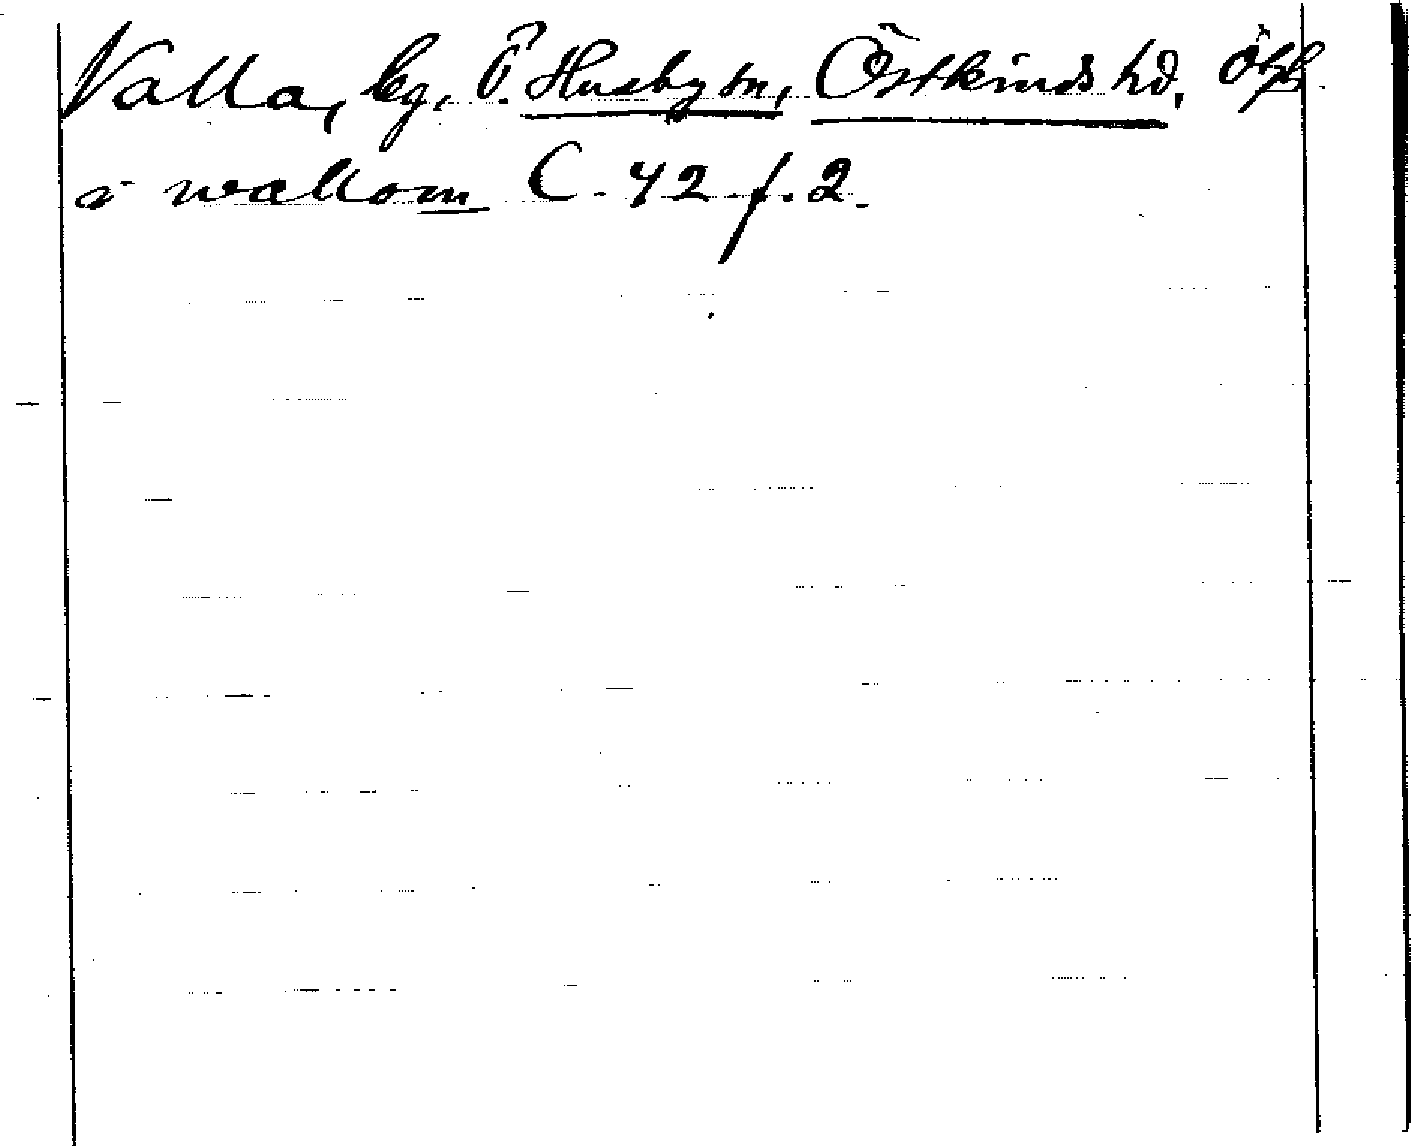 Valla, bg, Ö. Husby sn, Östkinds hd, Ögl.
i wallom C. 42 f. 2.